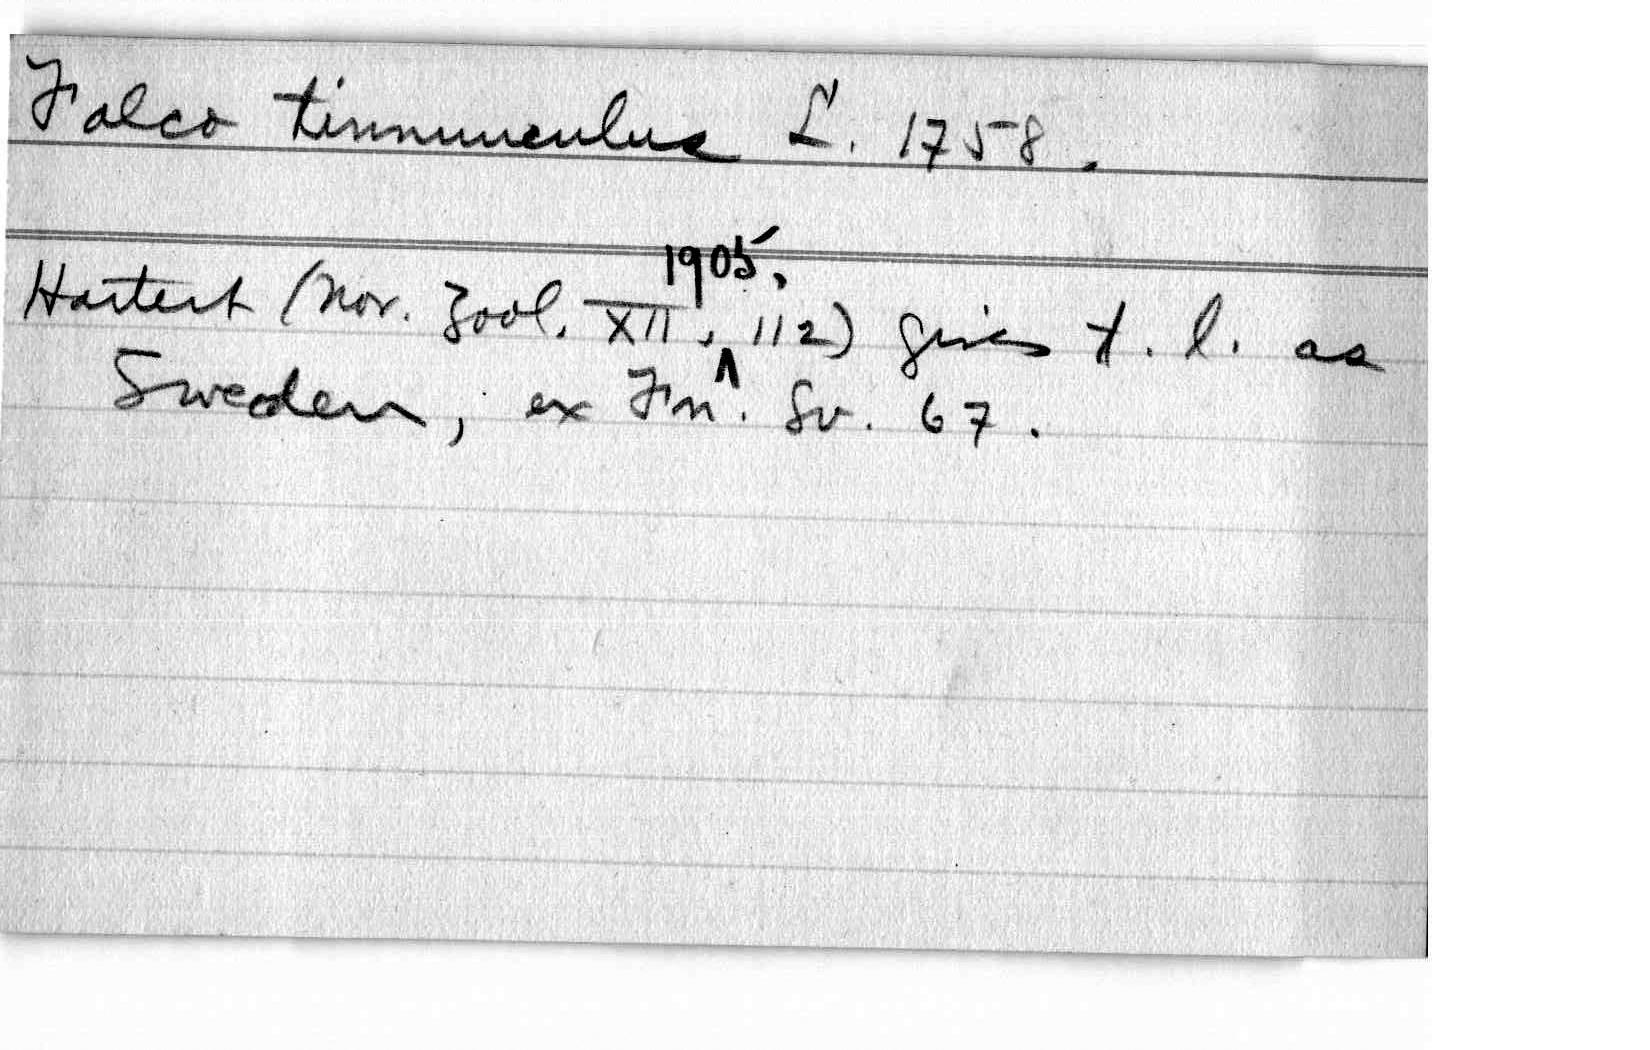 Falco tinnunculus L. 1758.
Hartert (Nov. Zool. XII, 1905, 112) gives t. l. as
Sweden, ex Fn. Sv. 67.